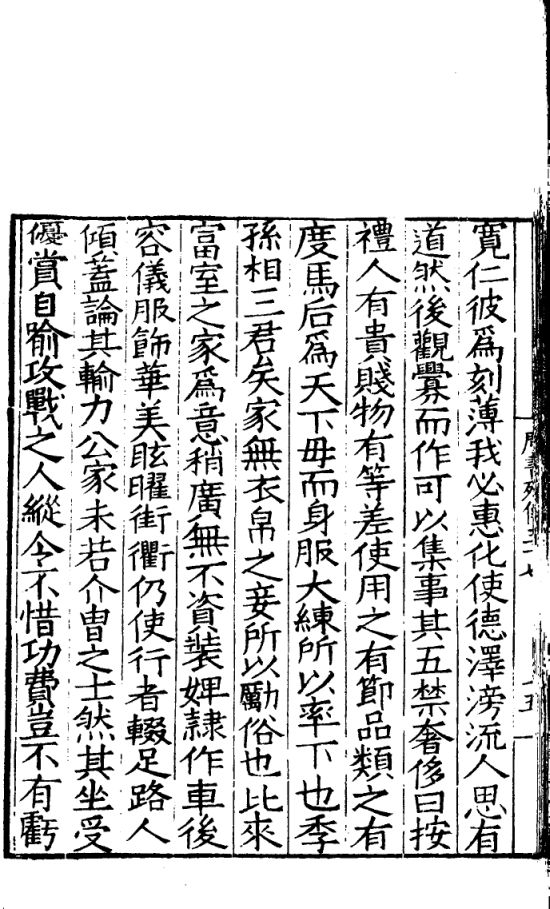 寛仁彼爲刻薄我必惠化使德澤滂流人思有
道然後觀釁而作可以集事其五禁奢侈曰按
禮人有貴賤物有等差使用之有節品類之有
度馬后爲天下毋而身服大練所以率下也季
孫相三君矣家無衣帛之妾所以勵俗也比來
富室之家爲意稍廣無不資裝婢隷作車後
容儀服飾華美眩曜街衢仍使行者輟足路人
傾蓋論其輸力公家未若介胄之士然其坐受
優賞自踰攻戰之人縱令不惜功費豈不有虧